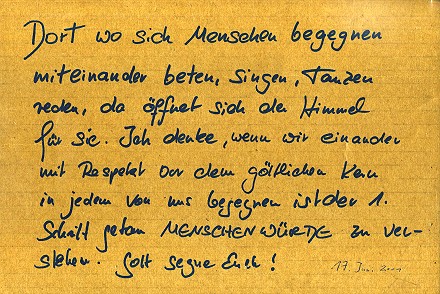 Dort wo sich Menschen begegnen
miteinander beten, singen, Tanzen
reden, da öffnet sich der Himmel
für sie. Ich denke, wenn wir einander
mit Respekt vor dem göttlichen Kern
in jedem von uns begegnen ist der 1.
Schritt getan MENSCHENWÜRDE zu ver-
stehen. Gott segne Euch!
17.